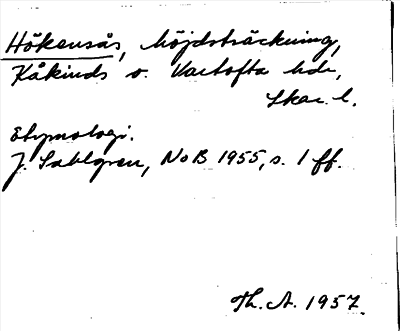 Hökensås, höjdsträckning,
Kåkinds o. Vartofta hdr,
Skar. l.
Etymologi.
J. Sahlgren, NoB 1955, s. 1 ff.
Th. A. 1957.